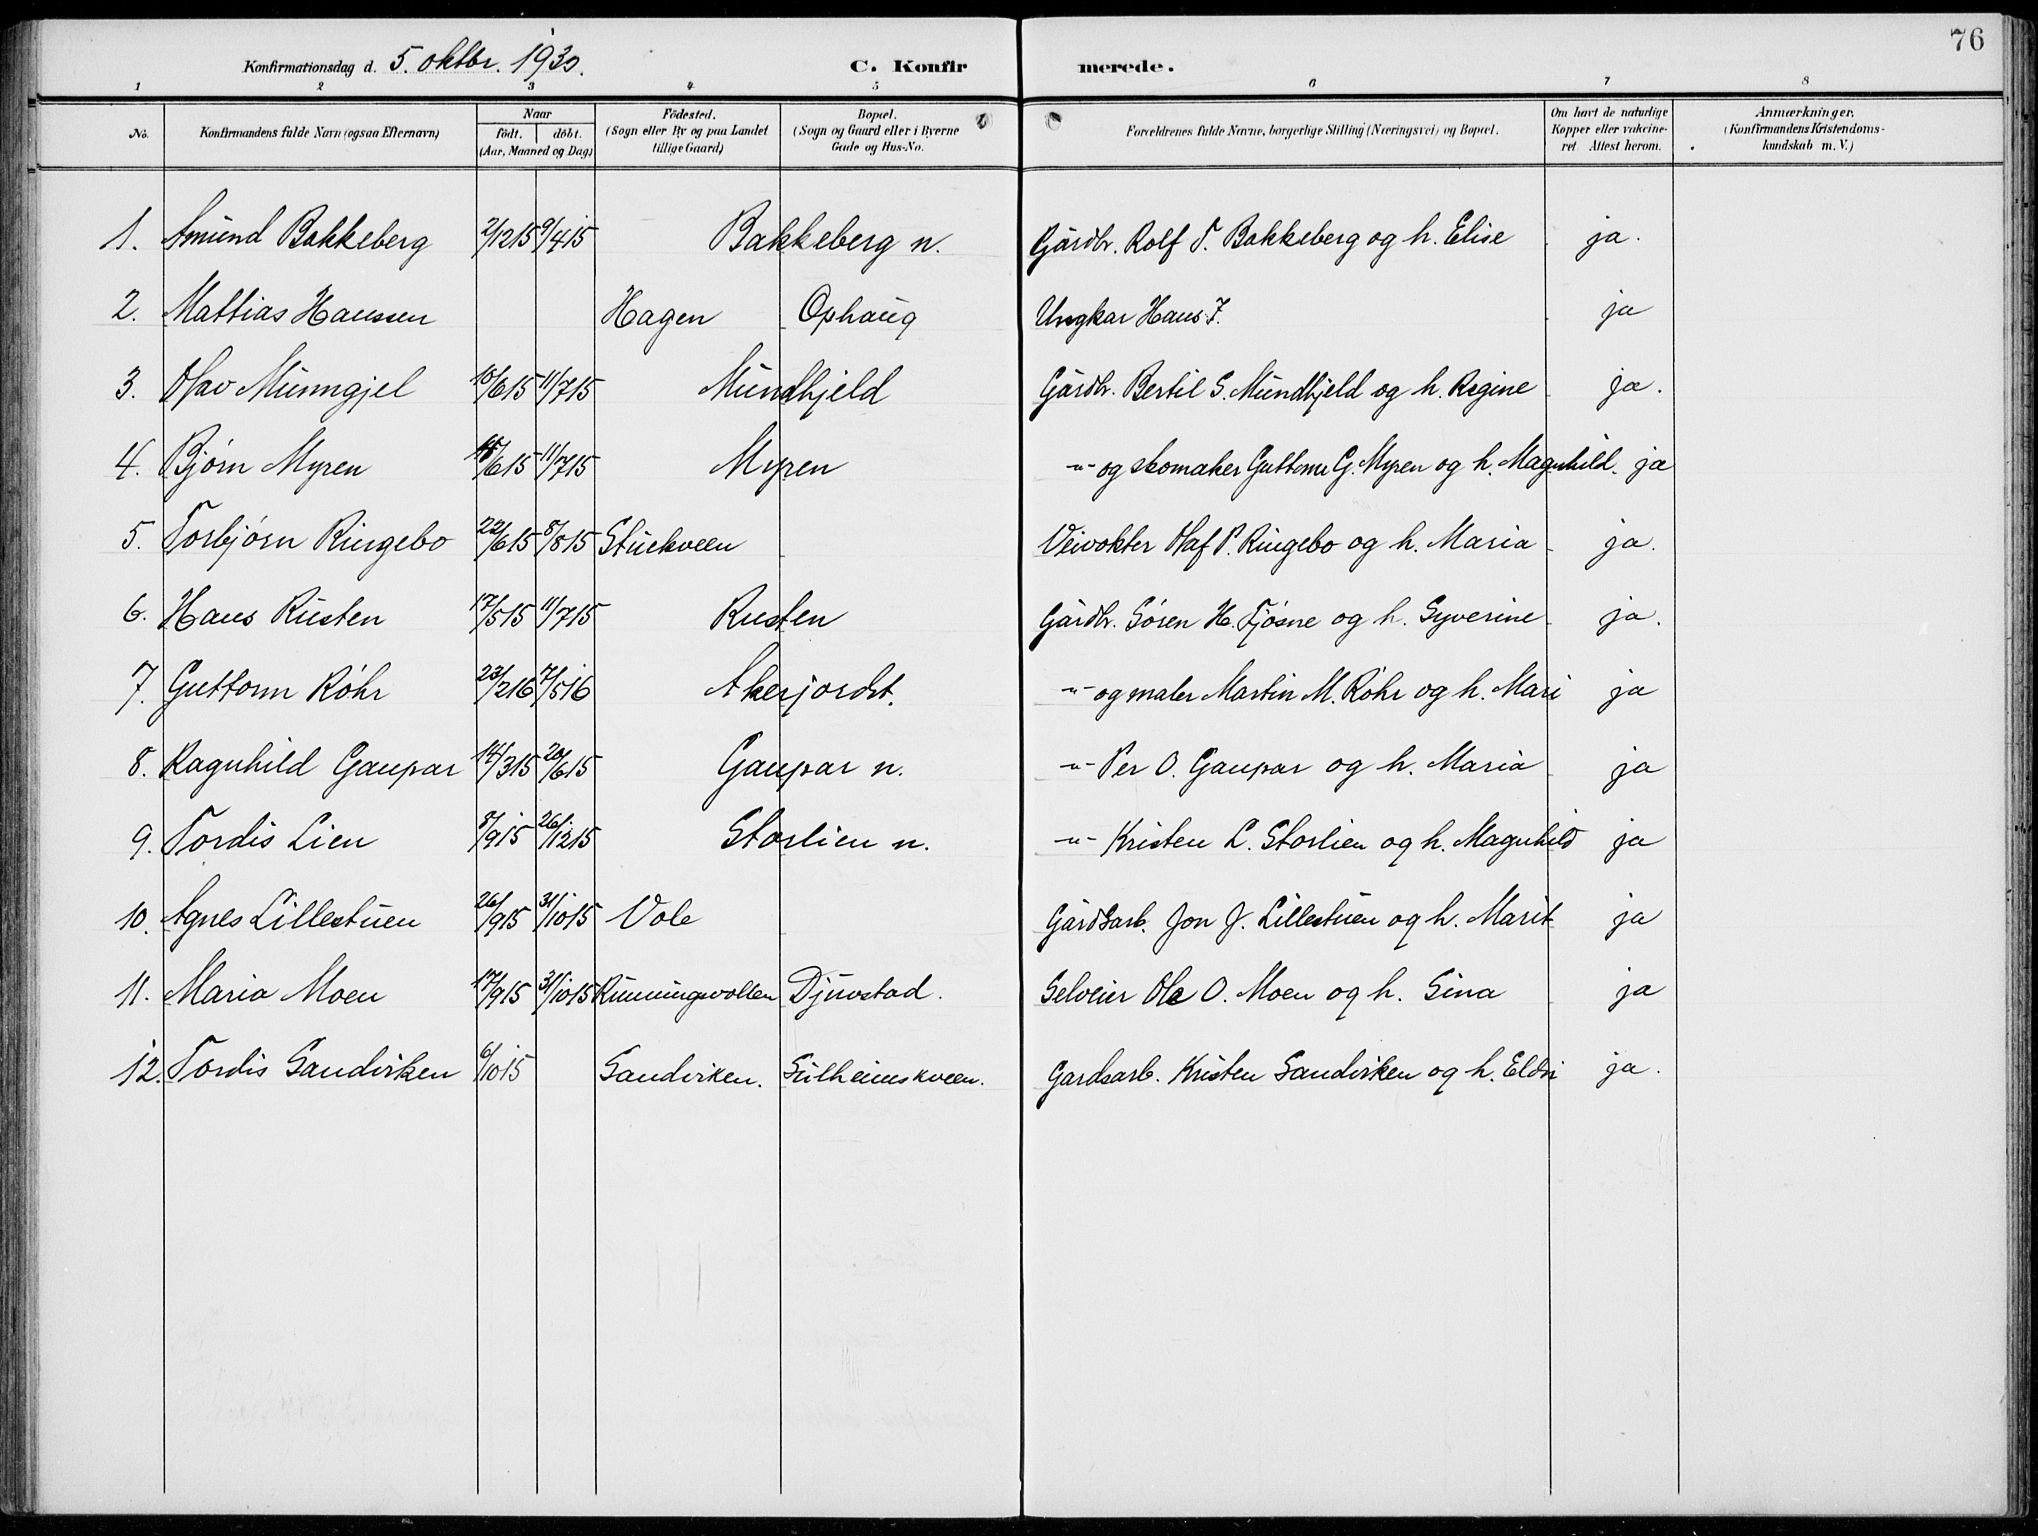 76
Konfirmationsdag d. 5. oktbr. 1930.
C. Konfirmerede.
1 2 3 4 5 6 7 8
No. Konfirmandens fulde Navn (ogsaa Efternavn) Naar födt. döbt. (Aar, Maaned og Dag) Födested. (Sogn eller By og paa Landet tillige Gaard) Bopæl. (Sogn og Gaard eller i Byerne Gade og Hus-No. Forældrenes fulde Navne, borgerlige Stilling (Næringsvei) og Bopæl. Om havt de naturlige Kopper eller vakcineret. Attest herom. Anmærkninger. (Konfirmandens Kristendomskundskab m. V.)
1. Amund Bakkeberg 2/12 15 9/4 15 Bakkeberg n. Gårdbr. Rolf T. Bakkeberg og h. Elise ja.
2. Mattias Hanssen Hagen Ophaug Ungkar Hans J. ja
3. Olav Munngjel 10/6 15 11/7 15 Mundhjeld Gårdbr. Bertil S. Mundhjeld og h. Regine ja.
4. Bjørn Myren /6 15 11/7 15 Myren -"- og skomaker Guttorm G. Myren og h. Magnhild. ja
5. Torbjørn Ringebo 22/6 15 8/8 15 Stuekveen Veivokter Olaf P. Ringebo og h. Maria ja.
6. Hans Rusten 17/5 15 11/7 15 Rusten Gårdbr. Søren H. Tjøsne og h. Syverine ja.
7. Guttorm Röhr 23/2 16 7/5 16 Akerjordst. -"- og maler Martin M. Röhr og h. Mari ja
8. Ragnhild Gaupar 14/3 15 20/6 15 Gaupar n. -"- Per O. Gaupar og h. Maria ja
9. Tordis Lien 8/9 15 26/12 15 Storlien n. -"- Kristen L. Storlien og h. Magnhild ja
10. Agnes Lillestuen 26/9 15 31/10 15 Vole Gårdsarb. Jon J. Lillestuen og h. Marit ja
11. Maria Moen 17/9 15 31/10 15 Runningsvollen Djuvstad. Selveier Ole O. Moen og h. Sina ja
12. Tordis Sandviken 6/10 15 Sandviken. Sulheimskveen. Gardsarb. Kristen Sandviken og h. Eldri ja.